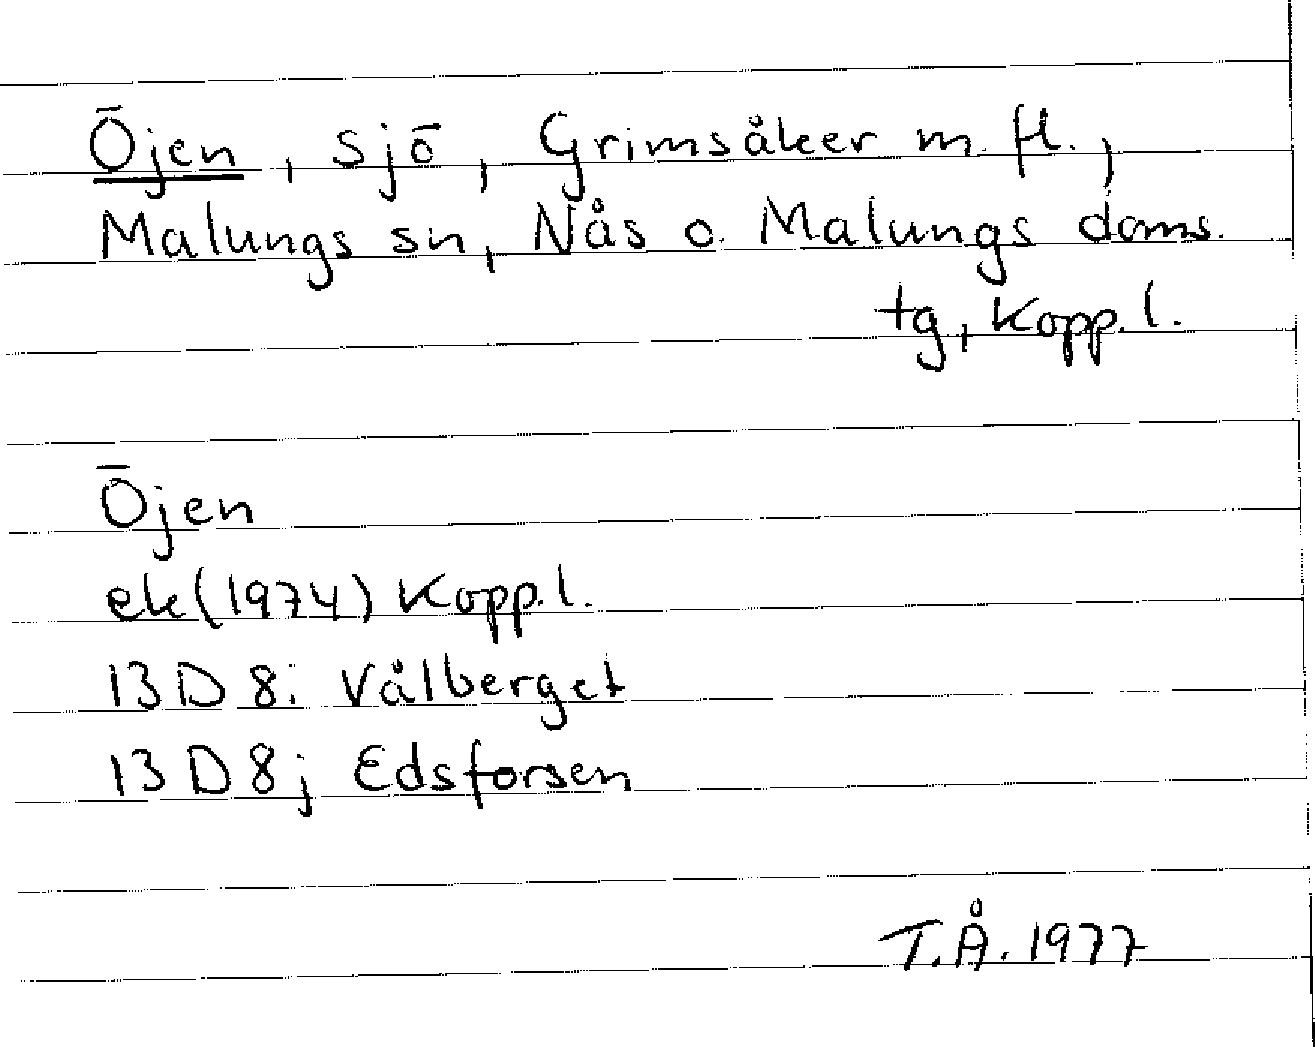 Öjen, sjö, Grimsåker m. fl.,
Malungs sn, Nås o. Malungs doms.
tg, Kopp. l.
Öjen
ek (1974) Kopp. l.
13 D 8i Vålberget
13 D 8j Edsforsen
T.Å. 1977